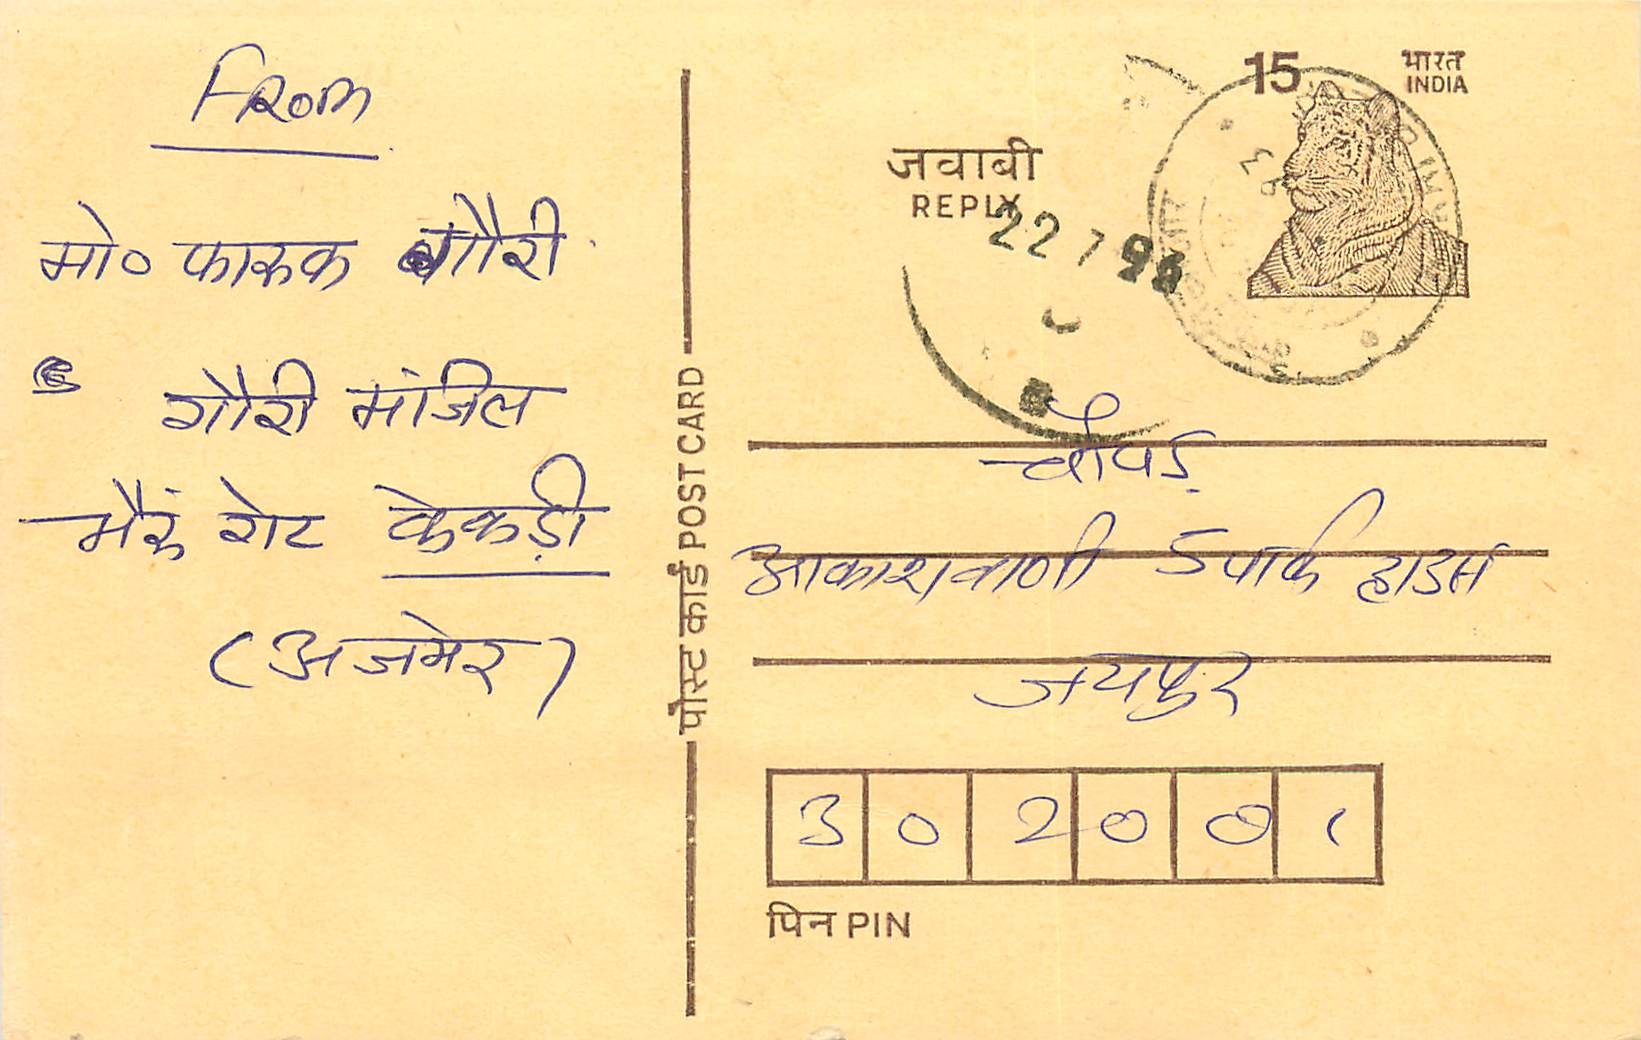 From
मो० फारुक गौरी
गौरी मंजिल
भैरुं गेट केकड़ी
(अजमेर)
पोस्ट कार्ड POST CARD
15
भारत
INDIA
जवाबी
REPLY
22 7 96
चौपड़
आकाशवाणी 5 पार्क हाउस
जयपुर
302001
पिन PIN